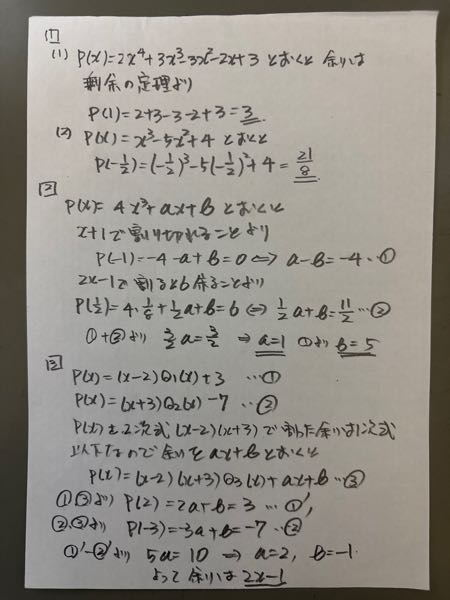 [1]
(1) P(x)=2x⁴+3x³-3x²-2x+3 とおくと 余りは
剰余の定理より
P(1)=2+3-3-2+3=3
(2) P(x)=x³-5x²+4 とおくと
P(-1/2)=(-1/2)³-5(-1/2)²+4=21/8
[2]
P(x)=4x³+ax+b とおくと
x+1で割り切れることより
P(-1)=-4-a+b=0⇔a-b=-4…①
2x-1で割ると6余ることより
P(1/2)=4・1/8+1/2a+b=6⇔1/2a+b=11/2…②
①+②より 3/2a=3/2 ⇒ a=1 ①より b=5
[3]
P(x)=(x-2)Q₁(x)+3 …①
P(x)=(x+3)Q₂(x)-7 …②
P(x)を2次式(x-2)(x+3)で割った余りは1次式
以下なので余りをax+bとおくと
P(x)=(x-2)(x+3)Q₃(x)+ax+b…③
①,③より P(2)=2a+b=3 …①'
②,③より P(-3)=-3a+b=-7…②'
①'-②'より 5a=10 ⇒ a=2, b=-1
よって 余りは 2x-1